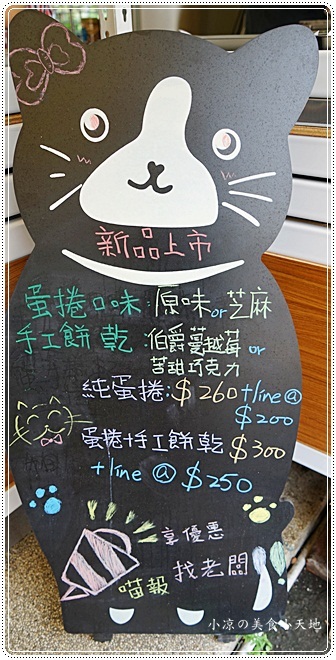 新品上市
蛋捲口味:原味or芝麻
手工餅乾:伯爵蔓越莓or
苦甜巧克力
純蛋捲:$260+line@
$200
蛋捲+手工餅乾$300
+line@$250
享優惠
找老闆
喵報
小凉の美食小天地